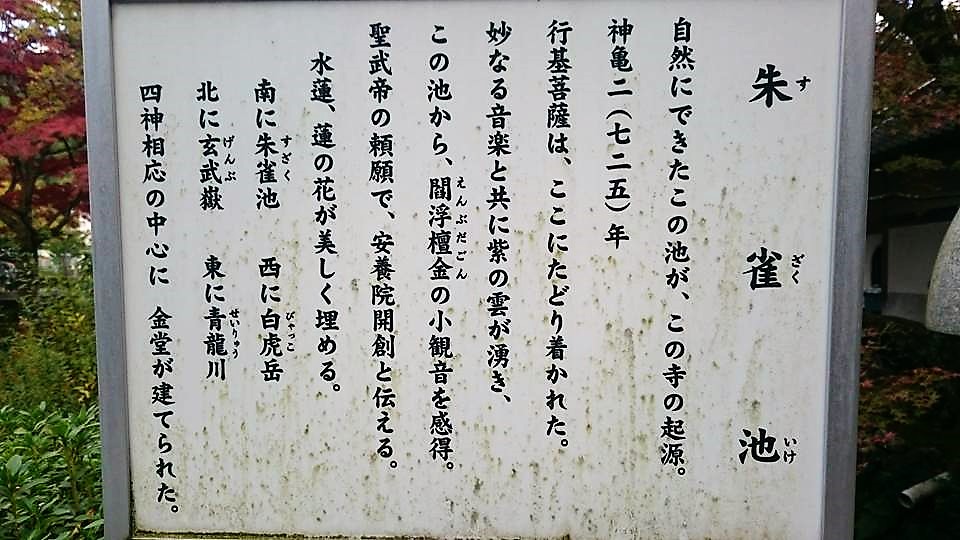 朱雀池
すざくいけ
自然にできたこの池が、この寺の起源。
神亀二(七二五)年
行基菩薩は、ここにたどり着かれた。
妙なる音楽と共に紫の雲が湧き、
この池から、閻浮檀金の小観音を感得。
えんぶだごん
聖武帝の頼願で、安養院開創と伝える。
水蓮、蓮の花が美しく埋める。
南に朱雀池 西に白虎岳
すざく びゃっこ
北に玄武嶽 東に青龍川
げんぶ せいりゅう
四神相応の中心に 金堂が建てられた。